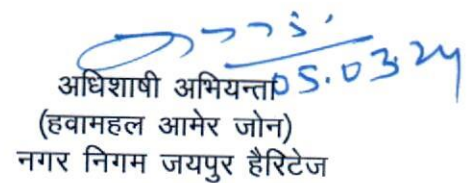 05.03.24
अधिशाषी अभियन्ता
(हवामहल आमेर जोन)
नगर निगम जयपुर हैरिटेज